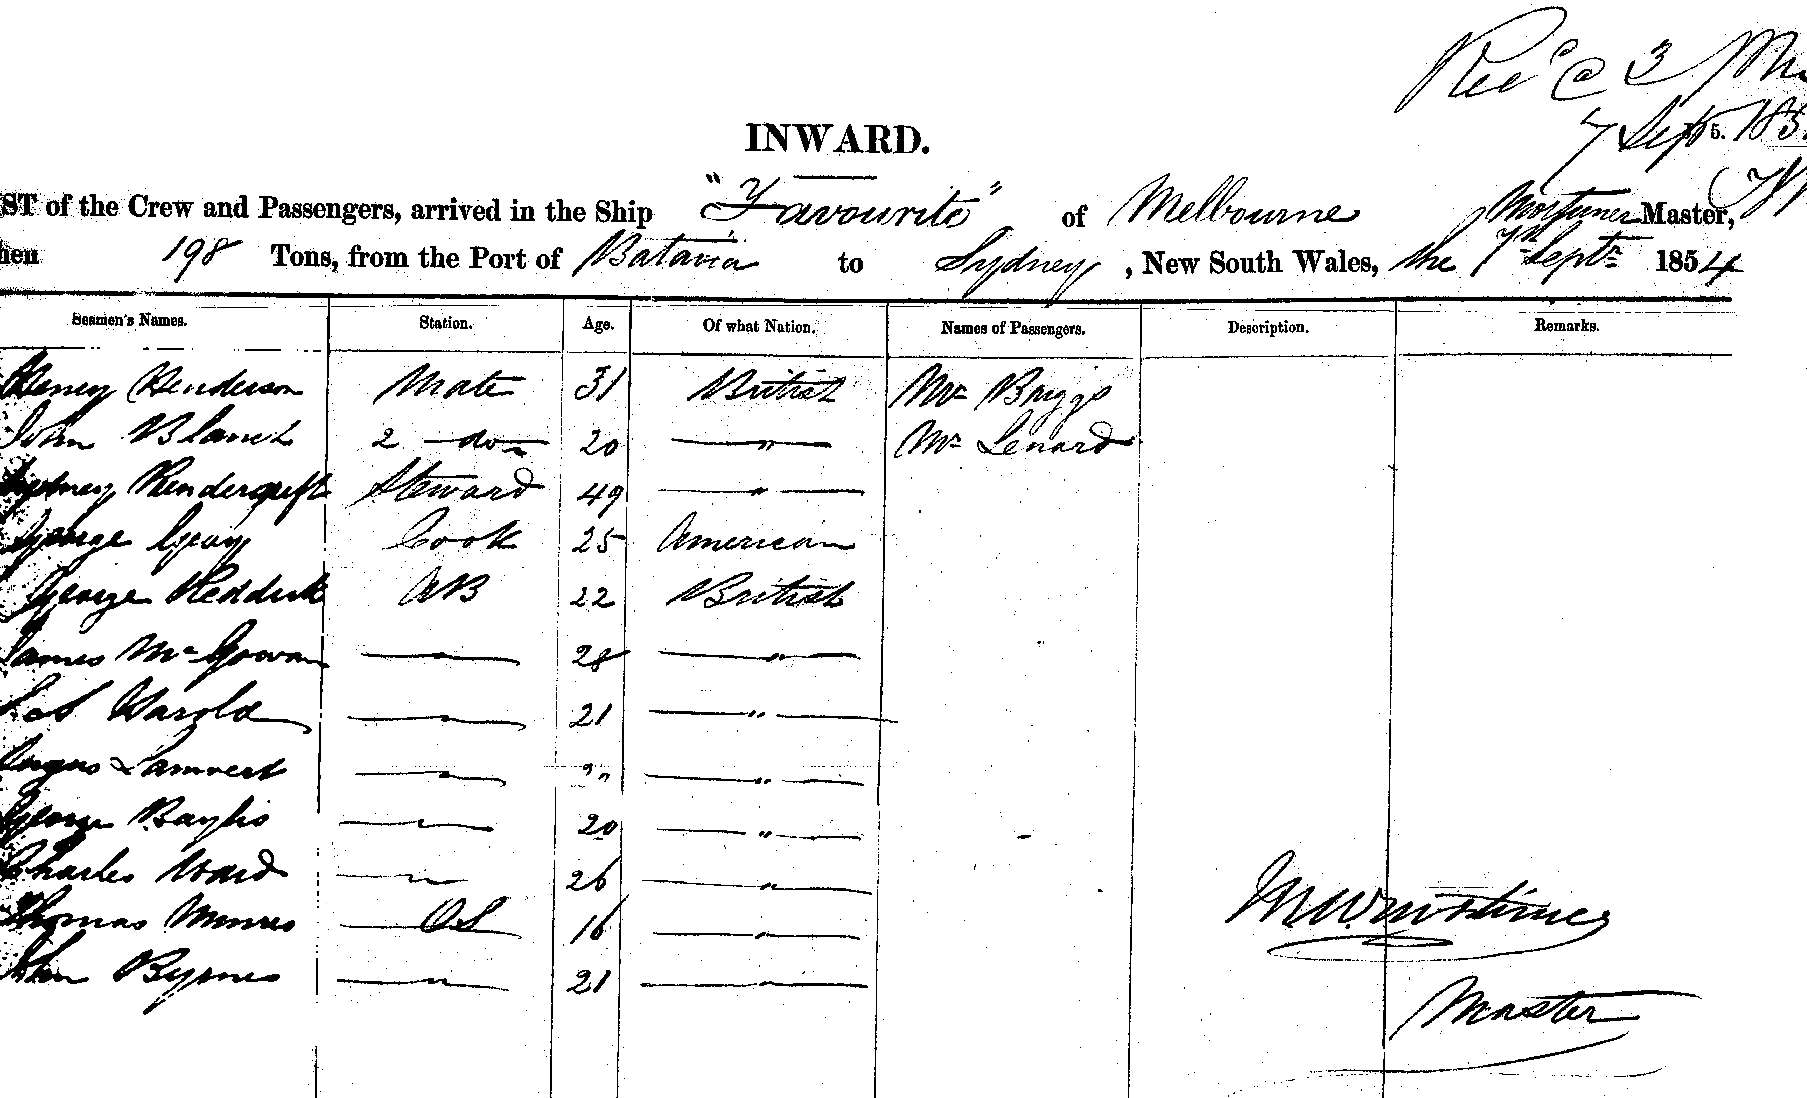 Rec'd @ 3
7 Sept 185
INWARD.
ST of the Crew and Passengers, arrived in the Ship "Favourite" of Melbourne Mortimer Master,
hen 198 Tons, from the Port of Batavia to Sydney, New South Wales, the 7th Septr 1854
Seamen's Names. Station. Age. Of what Nation. Names of Passengers. Description. Remarks.
Henry Henderson Mate 31 British Mr Briggs
John 2 do 20 " Mr Lenard
Sydney Steward 49 "
George Gray Cook 25 American
George Reddick AB 22 British
James McGowan " 28 "
Harold " 21 "
Angus Lammert " "
George Baylis " 20 "
Charles Ward " 26 "
Thomas Munro OS 16 "
John Byrnes " 21 "
M W Mortimer
Master